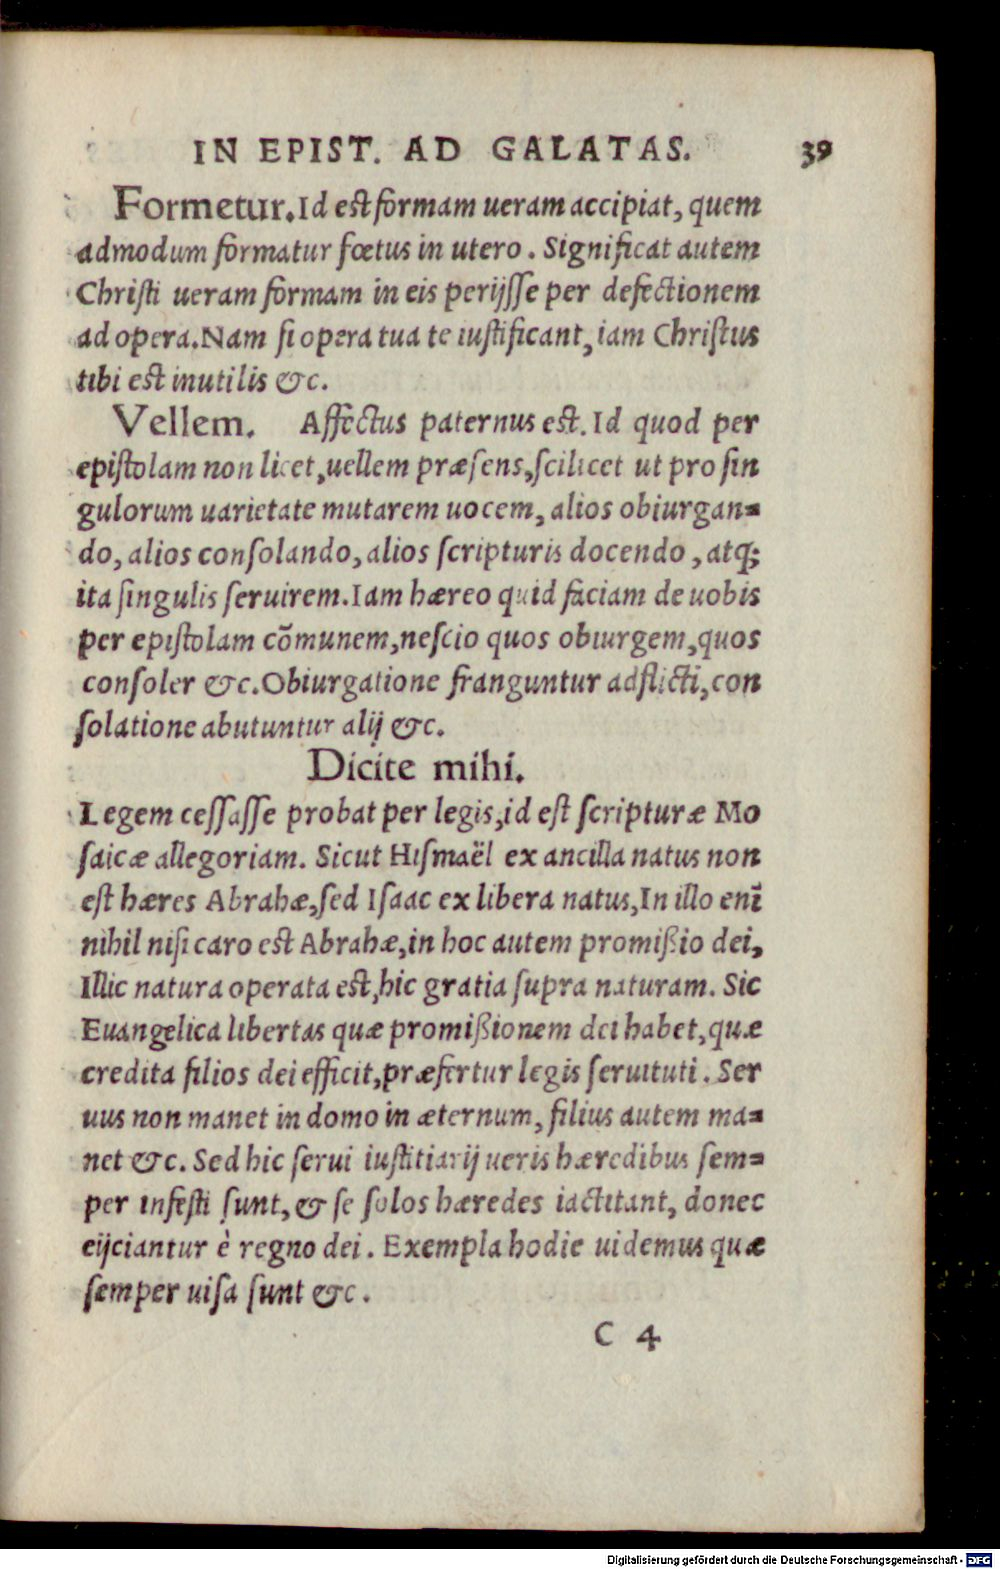 IN EPIST. AD GALATAS. 39
Formetur. Id est formam ueram accipiat, quem
admodum formatur fœtus in utero. Significat autem
Christi ueram formam in eis perijsse per defectionem
ad opera. Nam si opera tua te iustificant, iam Christus
tibi est inutilis &c.
Vellem. Affectus paternus est. Id quod per
epistolam non licet, uellem præsens, scilicet ut pro sin
gulorum uarietate mutarem uocem, alios obiurgan=
do, alios consolando, alios scripturis docendo, atq;
ita singulis seruirem. Iam hæreo quid faciam de uobis
per epistolam cõmunem, nescio quos obiurgem, quos
consoler &c. Obiurgatione franguntur adflicti, con
solatione abutuntur alij &c.
Dicite mihi.
Legem cessasse probat per legis, id est scripturæ Mo
saicæ allegoriam. Sicut Hismaël ex ancilla natus non
est hæres Abrahæ, sed Isaac ex libera natus, In illo enĩ
nihil nisi caro est Abrahæ, in hoc autem promißio dei,
Illic natura operata est, hic gratia supra naturam. Sic
Euangelica libertas quæ promißionem dei habet, quæ
credita filios dei efficit, præfertur legis seruituti. Ser
uus non manet in domo in æternum, filius autem ma=
net &c. Sed hic serui iustitiarij ueris hæredibus sem=
per infesti sunt, & se solos hæredes iactitant, donec
eijciantur è regno dei. Exempla hodie uidemus quæ
semper uisa sunt &c.
C 4
Digitalisierung gefördert durch die Deutsche Forschungsgemeinschaft - DFG